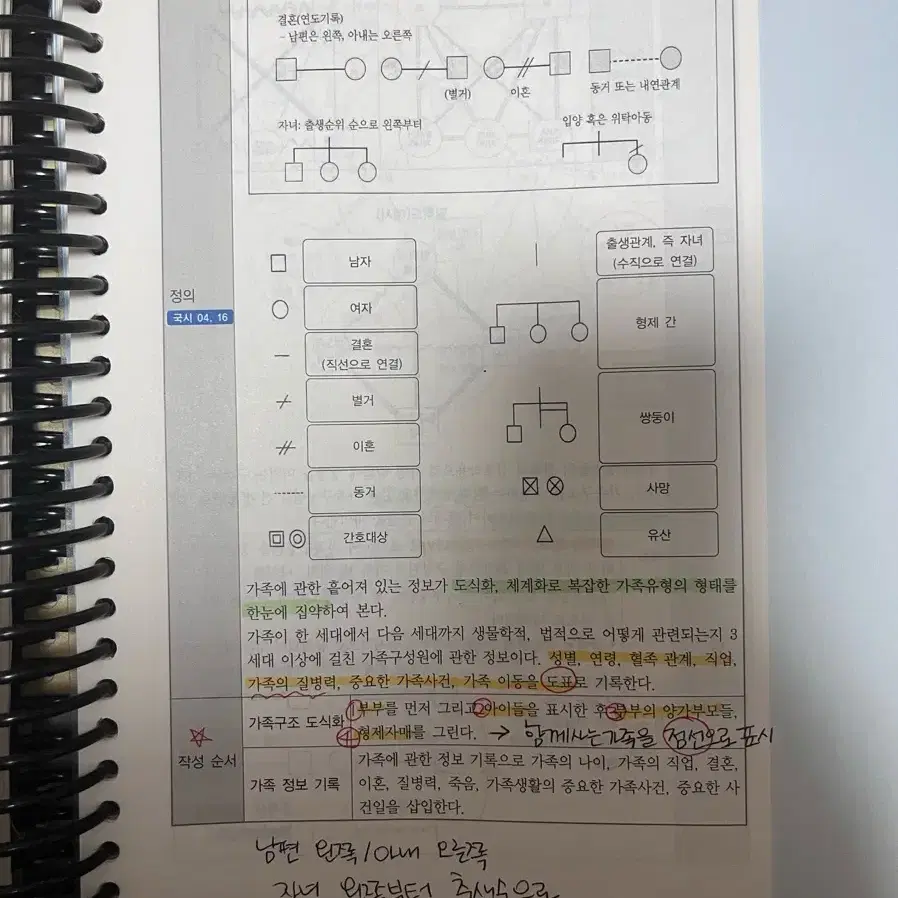 결혼(연도기록)
- 남편은 왼쪽, 아내는 오른쪽
(별거)
이혼
동거 또는 내연관계
자녀: 출생순위 순으로 왼쪽부터
입양 혹은 위탁아동
정의
국시 04, 16
남자
출생관계, 즉 자녀
(수직으로 연결)
여자
형제 간
결혼
(직선으로 연결)
별거
쌍둥이
이혼
동거
사망
간호대상
유산
가족에 관한 흩어져 있는 정보가 도식화, 체계화로 복잡한 가족유형의 형태를
한눈에 집약하여 본다.
가족이 한 세대에서 다음 세대까지 생물학적, 법적으로 어떻게 관련되는지 3
세대 이상에 걸친 가족구성원에 관한 정보이다. 성별, 연령, 혈족 관계, 직업,
가족의 질병력, 중요한 가족사건, 가족 이동을 도표로 기록한다.
작성 순서
가족구조 도식화
① 부부를 먼저 그리고 ② 아이들을 표시한 후 ③ 부부의 양가부모들,
④ 형제자매를 그린다. → 함께사는가족을 점선으로 표시
가족 정보 기록
가족에 관한 정보 기록으로 가족의 나이, 가족의 직업, 결혼,
이혼, 질병력, 죽음, 가족생활의 중요한 가족사건, 중요한 사
건일을 삽입한다.
남편 왼쪽/아내 오른쪽
자녀 왼쪽부터 출생순으로